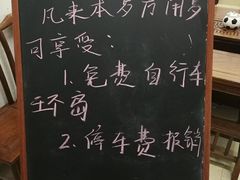 凡来本多方用多
可享受：
1.免费自行车
环岛
2.停车费报销